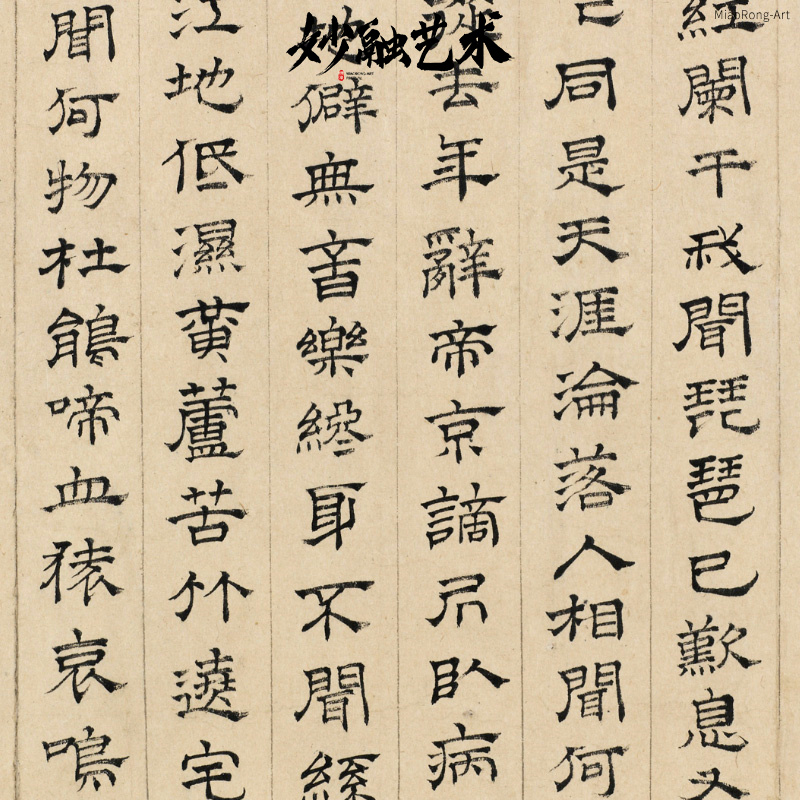 妙融艺术
MiaoRong-Art
紅闌干我聞琵琶已歎息又
同是天涯淪落人相聞何
去年辭帝京謫凥臥病
僻無音樂耳不聞絲
江地低濕黃蘆苦竹遶宅
聞何物杜鵑啼血猿哀鳴